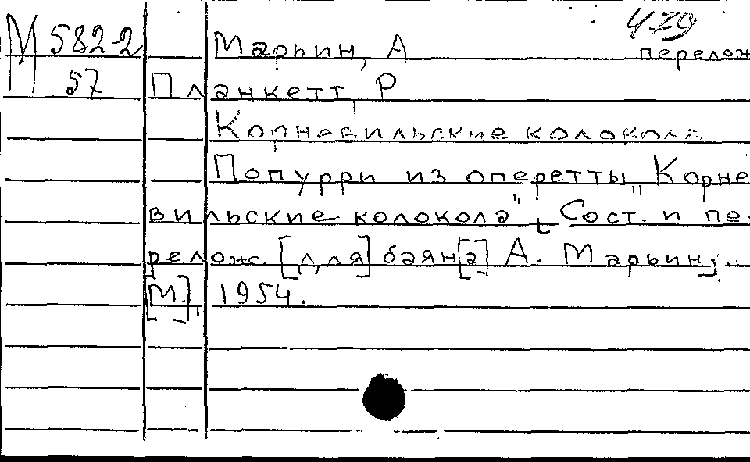 479
М 582-2 Марьин, А перелож
57 Планкетт, Р
Корневильские колокола
Попурри из оперетты „Корне
вильские колокола". Сост. и пе-
релож. [для] баян[а] А. Марьин,
[М], 1954.